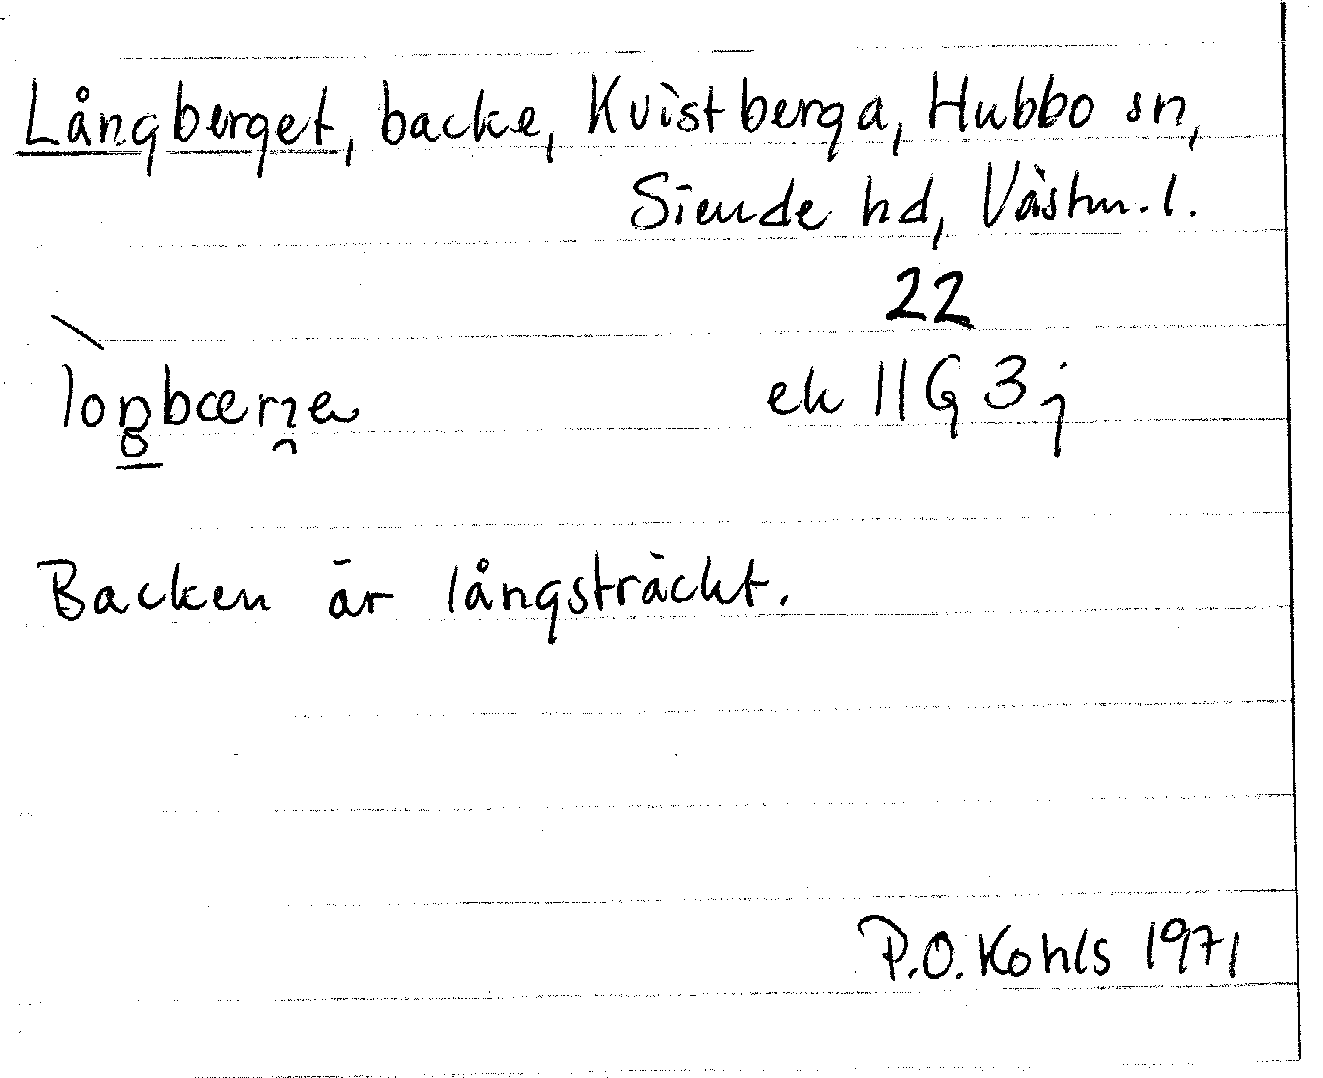 Långberget, backe, Kvistberga, Hubbo sn,
Siende hd, Västm. l.
22
ek 11G 3j
Backen är långsträckt.
P.O. Kohls 1971